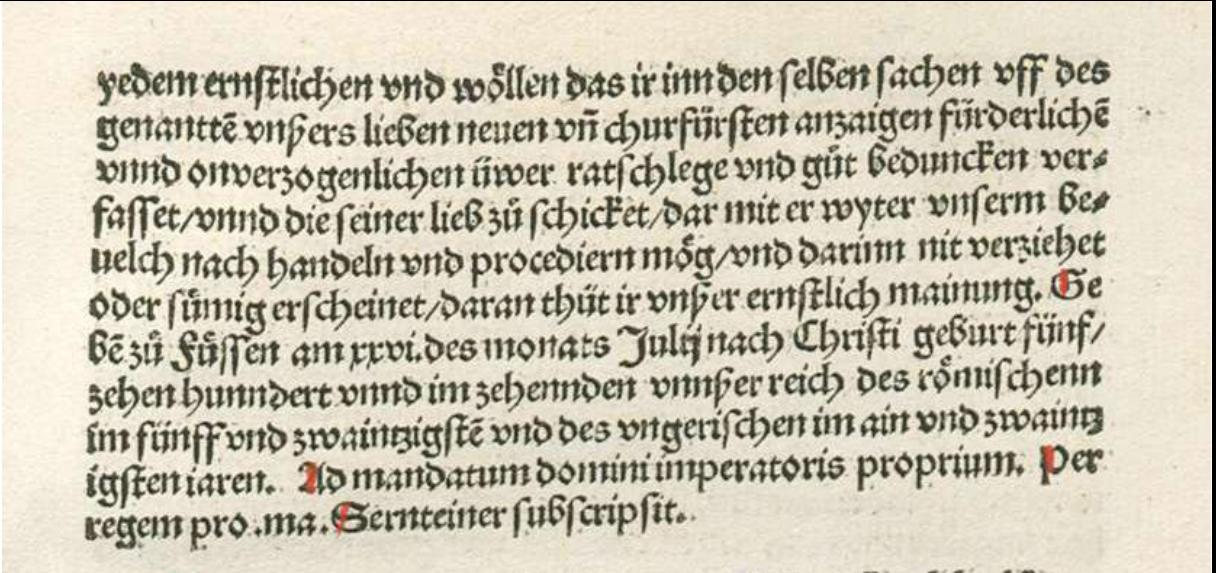 yedem ernstlichen vnd wöllen das ir inn den selben sachen vff des
genanttē vnßers lieben neuen vñ churfürsten anzaigen fürderlichē
vnnd onverzogenlichen üwer ratschlege vnd gůt beduncken ver⸗
fasset/vnnd die seiner lieb zů schicket/dar mit er wyter vnserm be⸗
uelch nach handeln vnd procediern mög/vnd darinn nit verziehet
oder sümig erscheinet/daran thüt ir vnßer ernstlich mainung. Ge
bē zů Füssen am xxvi.des monats Julij nach Christi geburt fünf/
zehen hunndert vnnd im zehennden vnnßer reich des römischenn
im fünff vnd zwaintzigstē vnd des vngerischen im ain vnd zwaintz
igsten iaren. Ad mandatum domini imperatoris proprium. Per
regem pro .ma. Sernteiner subscripsit.